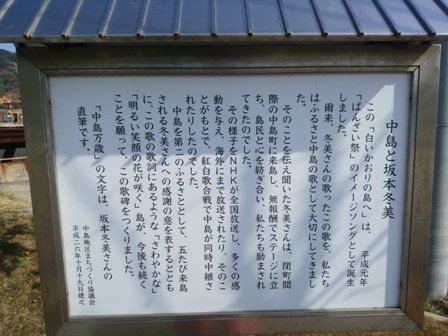 中島と坂本冬美
この「白いかおりの島へ」は、平成元年
「ばんざい祭」のイメージソングとして誕生
しました。
爾来、冬美さんの歌ったこの歌を、私たち
はふるさと中島の歌として大切にしてきまし
た。
そのことを伝え聞いた冬美さんは、閉町間
際の中島町に来島し、無報酬でステージに立
ち、島民と心を紡ぎ合い、私たちも励まされ
てきたのでした。
その様子をNHKが全国放送し、多くの感
動を与え、海外にまで放送されたり、そのこ
とがもとで、紅白歌合戦で中島が同時中継さ
れたりしたのでした。
中島を第二のふるさととして、五たび来島
される冬美さんへの感謝の意を表するととも
に、この歌の歌詞にあるような「さわやかな」
「明るい笑顔の花が咲く」島が、今後も続く
ことを願って、この歌碑をつくりました。
「中島万歳」の文字は、坂本冬美さんの
直筆です。
中島地区まちづくり協議会
平成二六年十月十九日建之